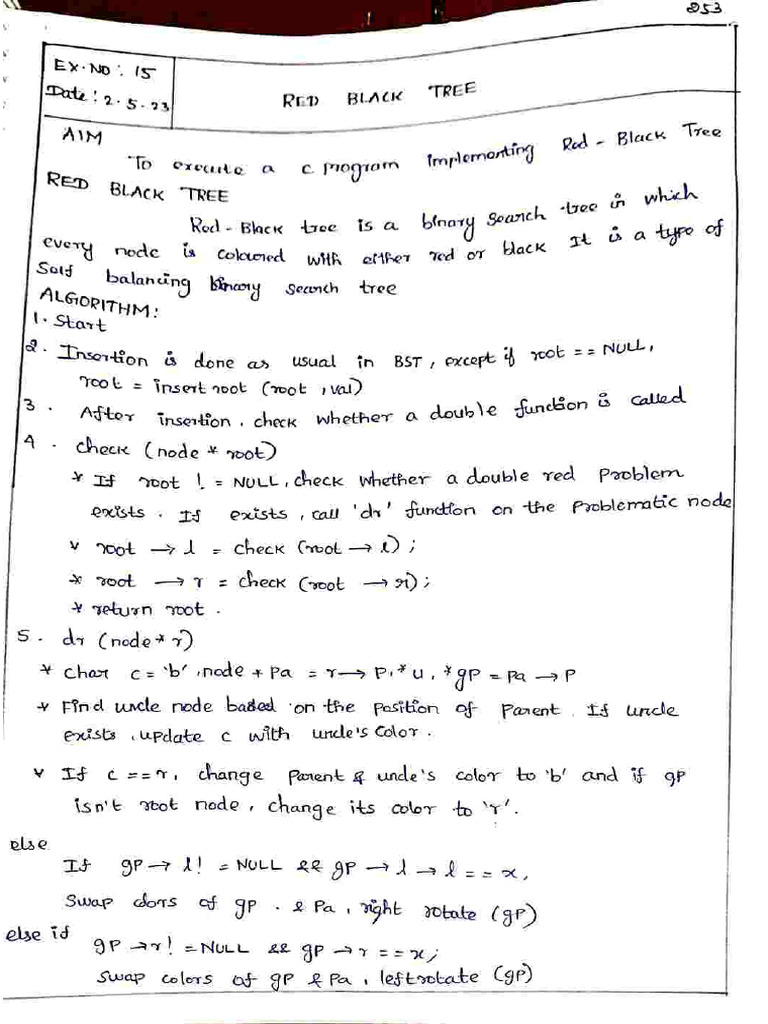 253
EX.NO: 15
Date: 2.5.23
RED BLACK TREE
AIM
To execute a c program implementing Red - Black Tree
RED BLACK TREE
Red - Black tree is a binary search tree in which
every node is coloured with either red or black It is a type of
Self balancing binary search tree
ALGORITHM:
1. Start
2. Insertion is done as usual in BST, except if root == NULL,
root = insert root (root, val)
3. After insertion, check whether a double function is called
4. check (node * root)
* If root != NULL, check whether a double red problem
exists. If exists, call 'dr' function on the problematic node
* root → l = check (root → l);
* root → r = check (root → r);
* return root.
5. dr (node * r)
* char c = 'b', node * pa = r → p, * u, * gp = pa → p
* Find uncle node based on the position of parent. If uncle
exists, update c with uncle's color.
* If c == r, change parent & uncle's color to 'b' and if gp
isn't root node, change its color to 'r'.
else
If gp → l != NULL && gp → l → l == x,
Swap colors of gp . & pa, right rotate (gp)
else if
gp → r! = NULL && gp → r == x;
Swap colors of gp & pa, left rotate (gp)